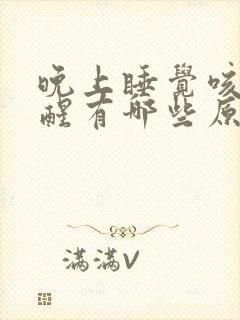 晚上睡覺咳
醒有哪些原
滿滿V